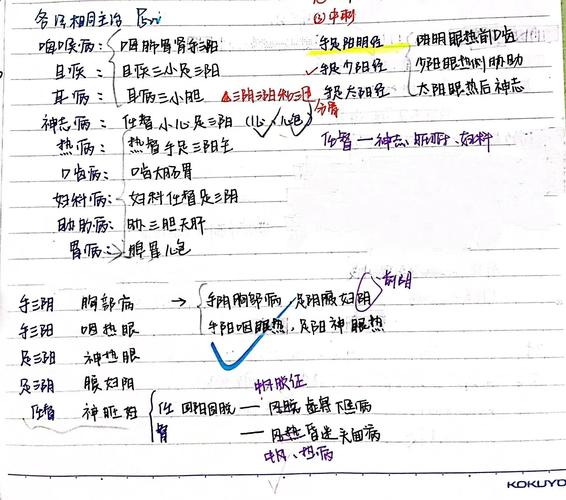 各经相同主治
③冲刺
咽喉病：咽肺胃肾手三阳
目疾：目疾三小足三阳
耳病：耳病三小胆
神志病：任督小心足三阴（心、心包）
热病：热督手足三阳主
口齿病：口齿大肠胃
妇科病：妇科任督足三阴
胁肋病：胁三胆天肝
胃病：脾胃心包
手足阳明经 阳明眼热前口齿
手足少阳经 少阳眼热侧胁助
手足太阳经 太阳眼热后神志
分督
任督一神志、脏病、妇科
手三阴 胸部病 → 手阴胸部病，足阴腹妇阴
前阴
手三阳 咽热眼 手阳咽眼热，足阳神眼热
足三阳 神热眼
足三阴 腹妇阴
任督 神脏妇
任 回阳固脱 —
督 —
中风脱证
中风、热病
KOKUYO